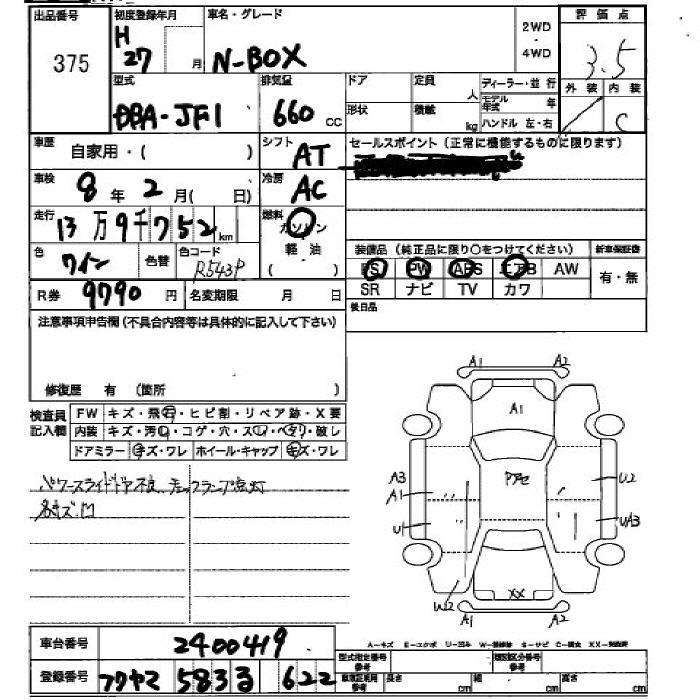 出品番号
375
初度登録年月
H
27 月
車名・グレード
N-BOX
2WD
4WD
評価点
3.5
外装 内装
C
型式
DBA-JF1
排気量
660 cc
ドア
定員
人
形状
積載
kg
ディーラー・並行
モデル年式 年
ハンドル 左・右
車歴
自家用・( )
シフト
AT
セールスポイント(正常に機能するものに限ります)
車検
8年 2月( 日)
冷房
AC
走行
13万9千752km
燃料
ガソリン
軽油
( )
色
ワイン
色替
色コード
R543P
装備品(純正品に限り○をつけてください)
新車保証書
PS PW ABS エアB AW
SR ナビ TV カワ
有・無
R券 9790円
名変期限 月 日
後日品
注意事項申告欄(不具合内容等は具体的に記入して下さい)
修復歴 有 (箇所 )
検査員
記入欄
FW キズ・飛石・ヒビ割・リペア跡・X要
内装 キズ・汚レ・コゲ・穴・スレ・ベタリ・破レ
ドアミラー キズ・ワレ ホイール・キャップ キズ・ワレ
パワースライドドア不良、チェックランプ点灯
A1 A2
A1
A3
A1
U1
U2
UA3
W2
XX
A1 A2
A-キズ E-エクボ U-凹み W-補修跡 S-サビ C-腐食 XX-交換済
車台番号
2400419
登録番号
フクヤマ 583 る 622
型式指定番号
参考
類別区分番号
参考
車庫証明用
参考
長さ cm
幅 cm
高さ cm